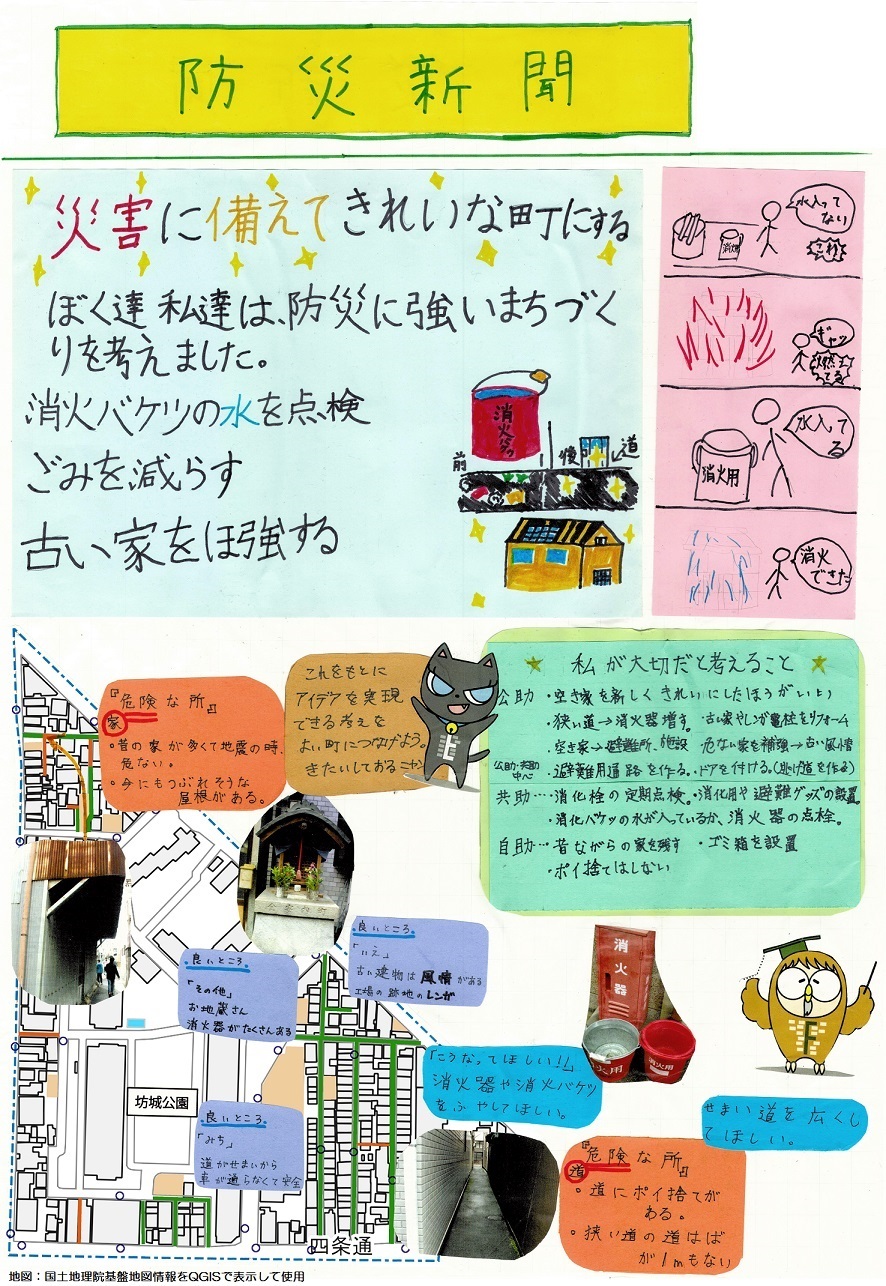 防災新聞
災害に備えてきれいな町にする
ぼく達 私達は、防災に強いまちづく
りを考えました。
消火バケツの水を点検
ごみを減らす
古い家をほ強する
消火バケツ
前
後
道
水入って
ない
消火用
ギャッ
燃えう
水入って
る
消火用
消火
できた
『危険な所』
家
・昔の家が多くて地震の時、
危ない。
・今にもつぶれそうな
屋根がある。
これをもとに
アイデアを実現
できる考えを
よい町につなげよう。
きたいしておる
☆ 私が大切だと考えること ☆
公助・空き家を新しくきれいにしたほうがいい
・狭い道→消火器増す。・古い家やレンガ電柱をリフォーム
・空き家→避難所、施設 危ない家を補強→古い風情
公助・共助
中心
・避難用通路を作る。・ドアを付ける。(逃げ道を作る)
共助…・消化栓の定期点検。・消化用や避難グッズの設置。
・消化バケツの水が入っているか、消火器の点検。
自助…・昔ながらの家を残す ・ゴミ箱を設置
・ポイ捨てはしない
良いところ
「いえ」
古い建物は風情がある
工場の跡地のレンガ
良いところ
「その他」
お地蔵さん
消火器がたくさんある
消火器
消火用
消火用
「こうなってほしい!!」
消火器や消火バケツ
をふやしてほしい。
せまい道を広くし
てほしい。
坊城公園
良いところ
「みち」
道がせまいから
車が通らなくて安全
『危険な所』
道
・道にポイ捨てが
ある。
・狭い道の道はば
が1mもない
四条通
地図：国土地理院基盤地図情報をQGISで表示して使用